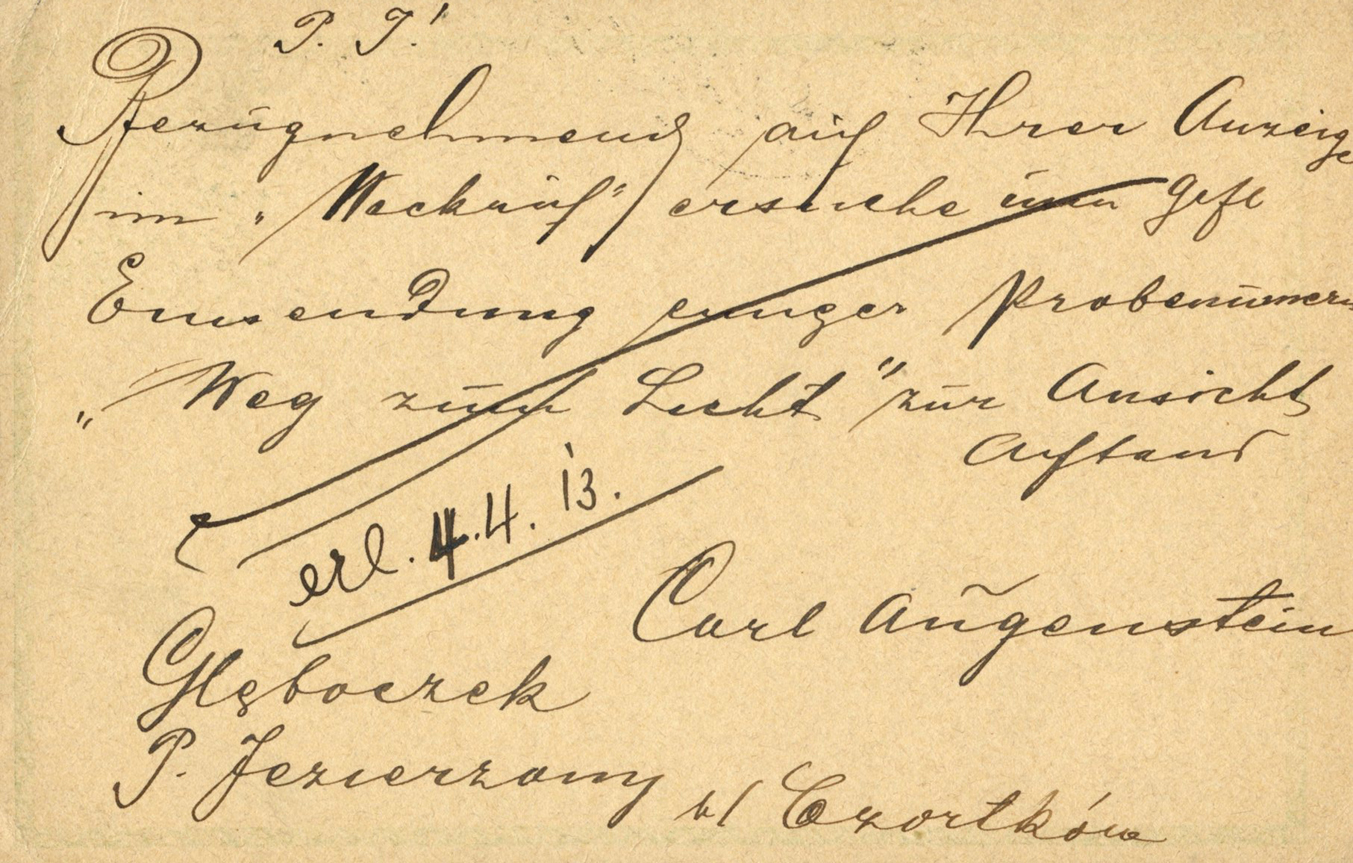 P. T.!
Bezugnehmend auf Ihrer Anzeige
im „Weckruf" ersuche um gefl
Einsendung einiger Probenumern
„Weg zum Licht" zur Ansicht
erl. 4.4. 13.
Carl Augenstein
Głęboczek
P. Jezierzany
b/ Czortków